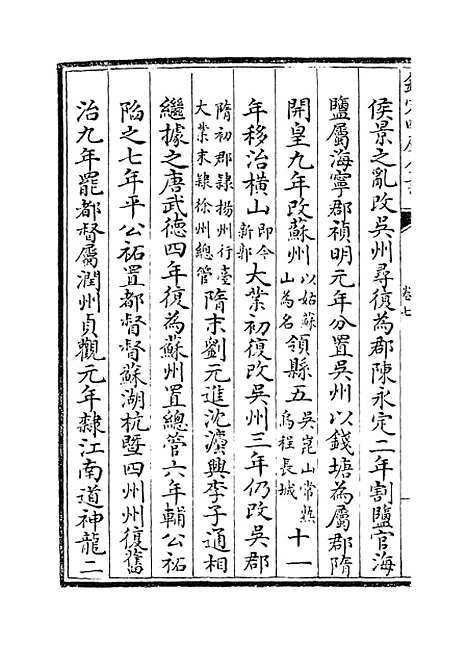 卷七
侯景之亂改吳州尋復為郡陳永定二年割鹽官海
鹽屬海寧郡禎明元年分置吳州以錢塘為屬郡隋
開皇九年改蘇州以姑蘇山為名領縣五吳崑山常熟烏程長城十一
年移治橫山即今新郭大業初復改吳州三年仍改吳郡
隋初郡隸揚州行臺大業末隸徐州總管隋末劉元進沈灋興李子通相
繼據之唐武德四年復為蘇州置總管六年輔公祏
陷之七年平公祏置都督督蘇湖杭暨四州州復舊
治九年罷都督屬潤州貞觀元年隸江南道神龍二